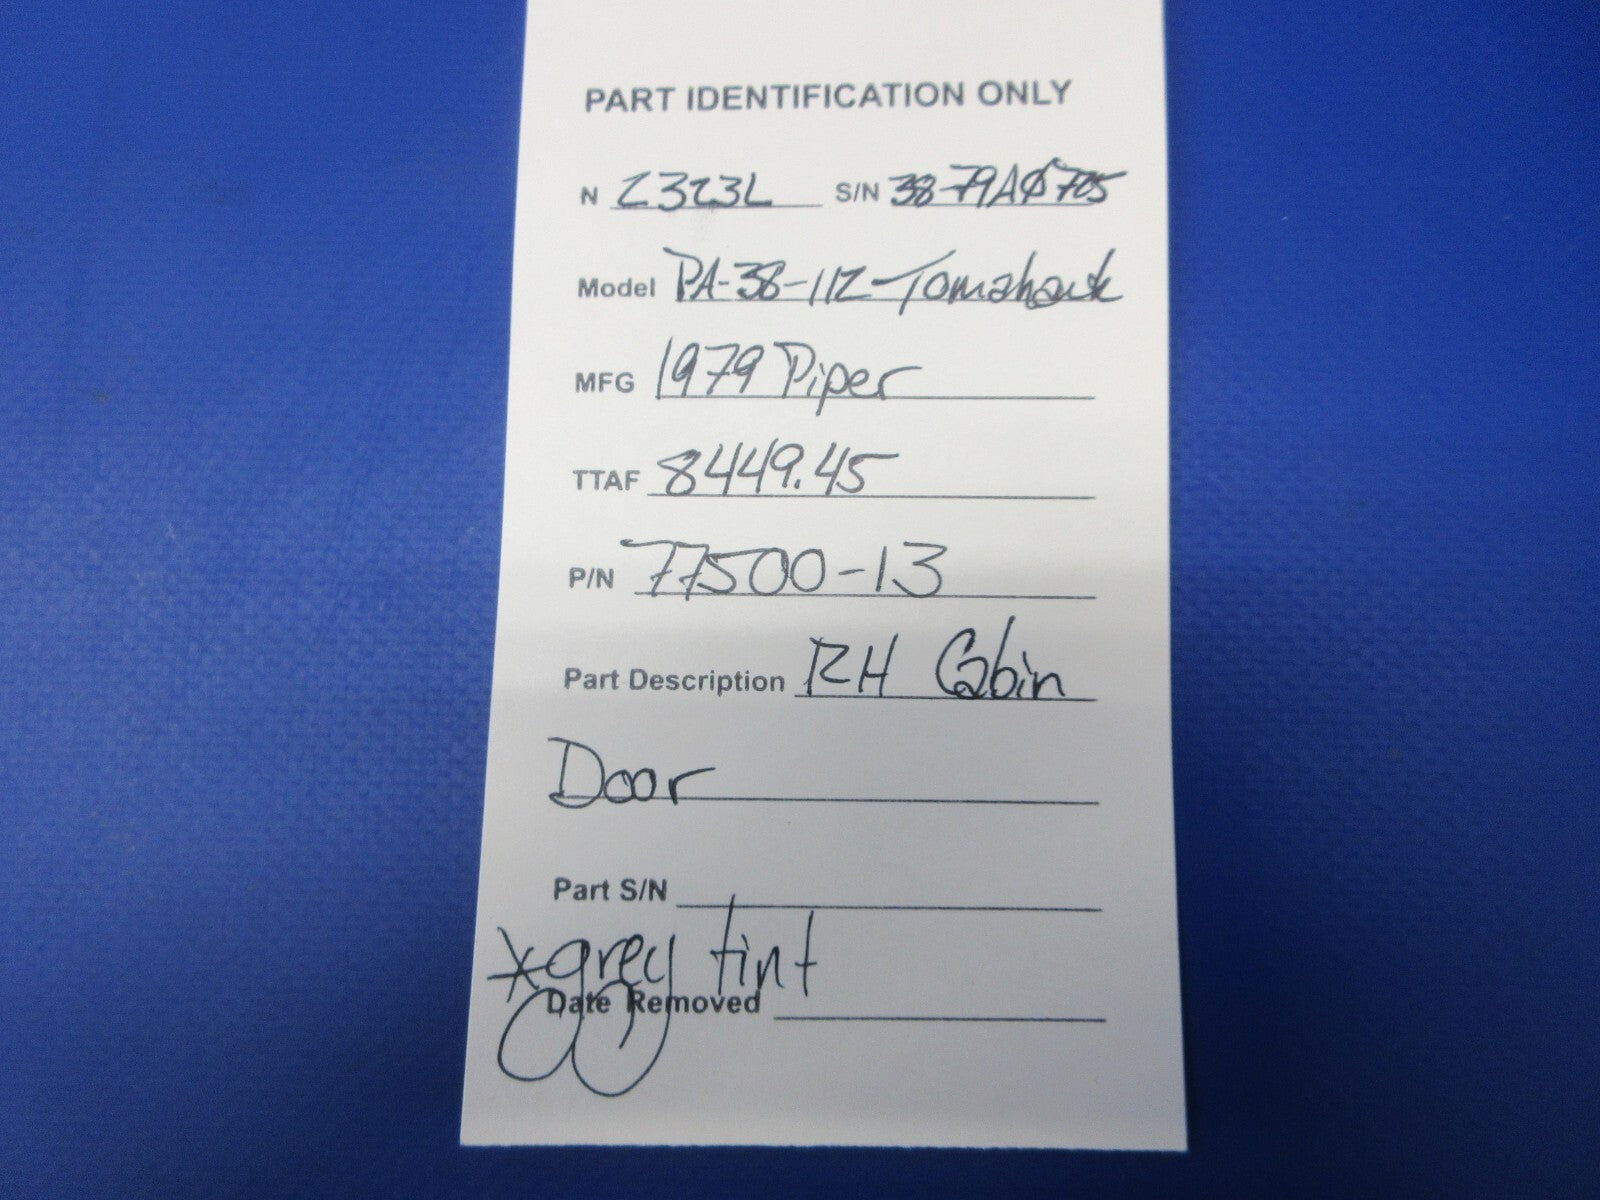 PART IDENTIFICATION ONLY
N 2323L S/N 38-79A0705
Model PA-38-112-Tomahawk
MFG 1979 Piper
TTAF 8449.45
P/N 77500-13
Part Description RH Cabin
Door
Part S/N
*grey tint
Date Removed